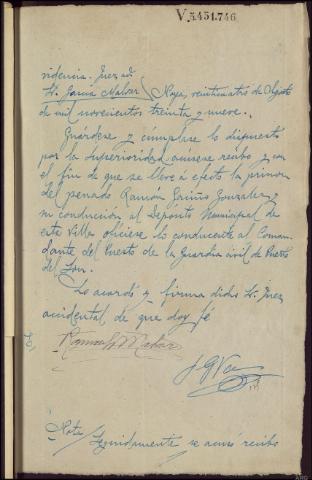 V.5451.746
videncia. Juez ad.
Sr. García Malvar / Noya, veinticuatro de Agosto
de mil novecientos treinta y nueve.
Guárdese y cúmplase lo dispuesto
por la Superioridad acúsese recibo y con
el fin de que se lleve á efecto la prision
del penado Ramón Gaiño Gonzalez y
su conducción al Deposito Municipal de
esta Villa oficiese lo conducente al Coman-
dante del Puesto de la Guardia civil de Puerto
del Son.
Lo acordó y firma dicho Sr. Juez
accidental de que doy fé
Ramon G Malvar
Nota / Seguidamente se acusó recibo